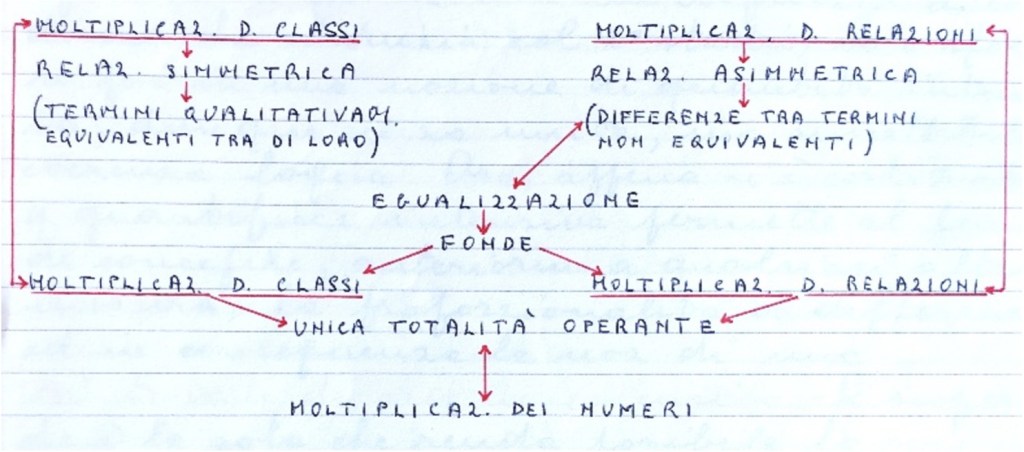 MOLTIPLICAZ. D. CLASSI
MOLTIPLICAZ. D. RELAZIONI
RELAZ. SIMMETRICA
RELAZ. ASIMMETRICA
(TERMINI QUALITATIVAM.
EQUIVALENTI TRA DI LORO)
(DIFFERENZE TRA TERMINI
NON EQUIVALENTI)
EGUALIZZAZIONE
FONDE
MOLTIPLICAZ. D. CLASSI
MOLTIPLICAZ. D. RELAZIONI
UNICA TOTALITÀ OPERANTE
MOLTIPLICAZ. DEI NUMERI